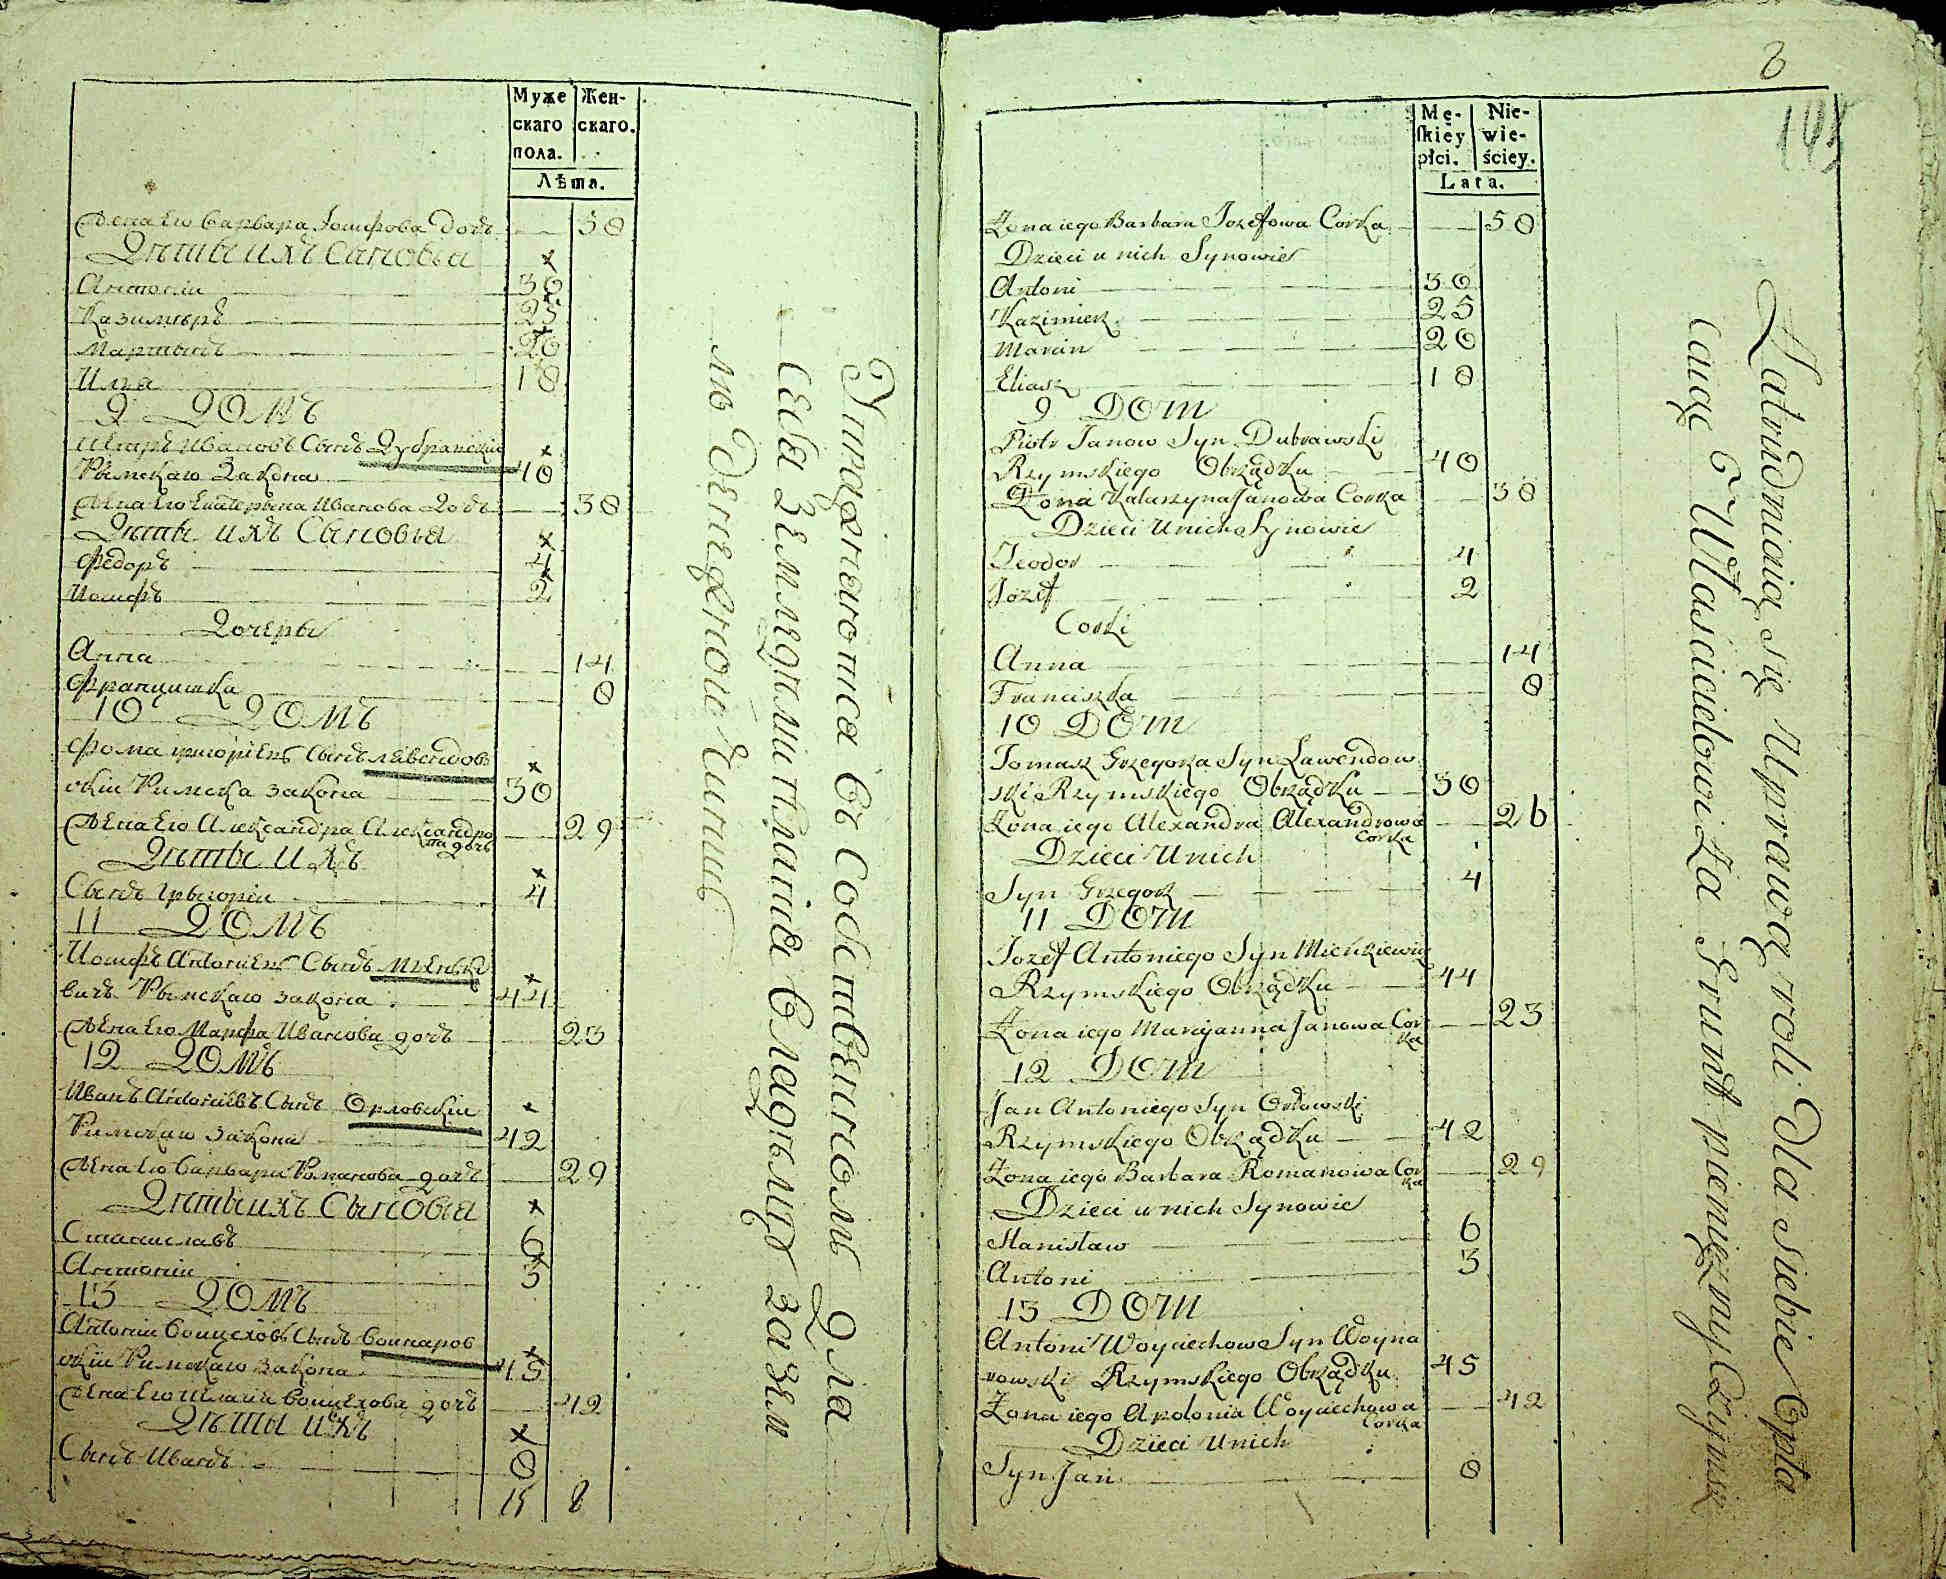 Муже
скаго
пола.
Жен-
скаго.
Лѣта.
Жена Его Варвара Іосифова дочь 50
Дѣти ихъ Сыновья
Антоніи 30
Казимѣръ 25
Мартынъ 20
Илья 18
9 Домъ
Петръ Ивановъ Сынъ Дубравскіи
Рымскаго Закона 40
Жена Его Екатерына Иванова Дочь 38
Дѣти ихъ Сыновья
Федоръ 4
Иосифъ 2
Дочеры
Анна 14
Францишка 8
10 Домъ
Фома Сынъ Лавендов
скіи Римска закона 30
Жена Его Александра Александро
ва дочь 29
Дѣти ихъ
Сынъ Грыгоріи 4
11 Домъ
Иосифъ Антоніевъ Сынъ Мѣньке
вичъ Рымскаго закона 44
Жена Его Марфа Иванова дочь 23
12 Домъ
Иванъ Антоніевъ Сынъ Орловскіи
Римскаго закона 42
Жена Его Варвара Романова дочь 29
Дѣти ихъ Сыновья
Станиславъ 6
Антоніи 3
13 Домъ
Антоніи Воицеховъ Сынъ Воинаров
скіи Римскаго закона 45
Жена Его Воицехова дочь 42
Дѣти ихъ
Сынъ Иванъ 8
15 8
Упражняются въ Собственномъ для
Себя Земледѣліи платя владѣльцу за зем
лю денежной Чиншъ
8
Mę-
skiey
płci.
Nie-
wie-
ściey.
Lata.
Żona iego Barbara Jozefowa Corka 50
Dzieci u nich Synowie
Antoni 30
Kazimierz 25
Marcin 20
Eliasz 18
9 Dom
Piotr Janow Syn Dubrawski
Rzymskiego Obrządku 40
Żona Katarzyna Janowa Corka 38
Dzieci u nich Synowie
Teodor 4
Jozef 2
Corki
Anna 14
Franciszka 8
10 Dom
Tomasz Grzegorza Syn Lawendow
ski Rzymskiego Obrządku 30
Żona iego Alexandra Alexandrowa
Corka 26
Dzieci u nich
Syn Grzegorz 4
11 Dom
Jozef Antoniego Syn Mieńkiewicz
Rzymskiego Obrządku 44
Żona iego Maryanna Janowa Cor
ka 23
12 Dom
Jan Antoniego Syn Orłowski
Rzymskiego Obrządku 42
Żona iego Barbara Romanowa Cor
ka 29
Dzieci u nich Synowie
Stanisław 6
Antoni 3
13 Dom
Antoni Woyciechow Syn Woyna
rowski Rzymskiego Obrządku 45
Żona iego Apolonia Woyciechowa
Corka 42
Dzieci u nich
Syn Jan 8
Zatrudniaią się Uprawą roli dla siebie Opła
caiąc Właścicielowi Za Grunt pieniężny Czynsz